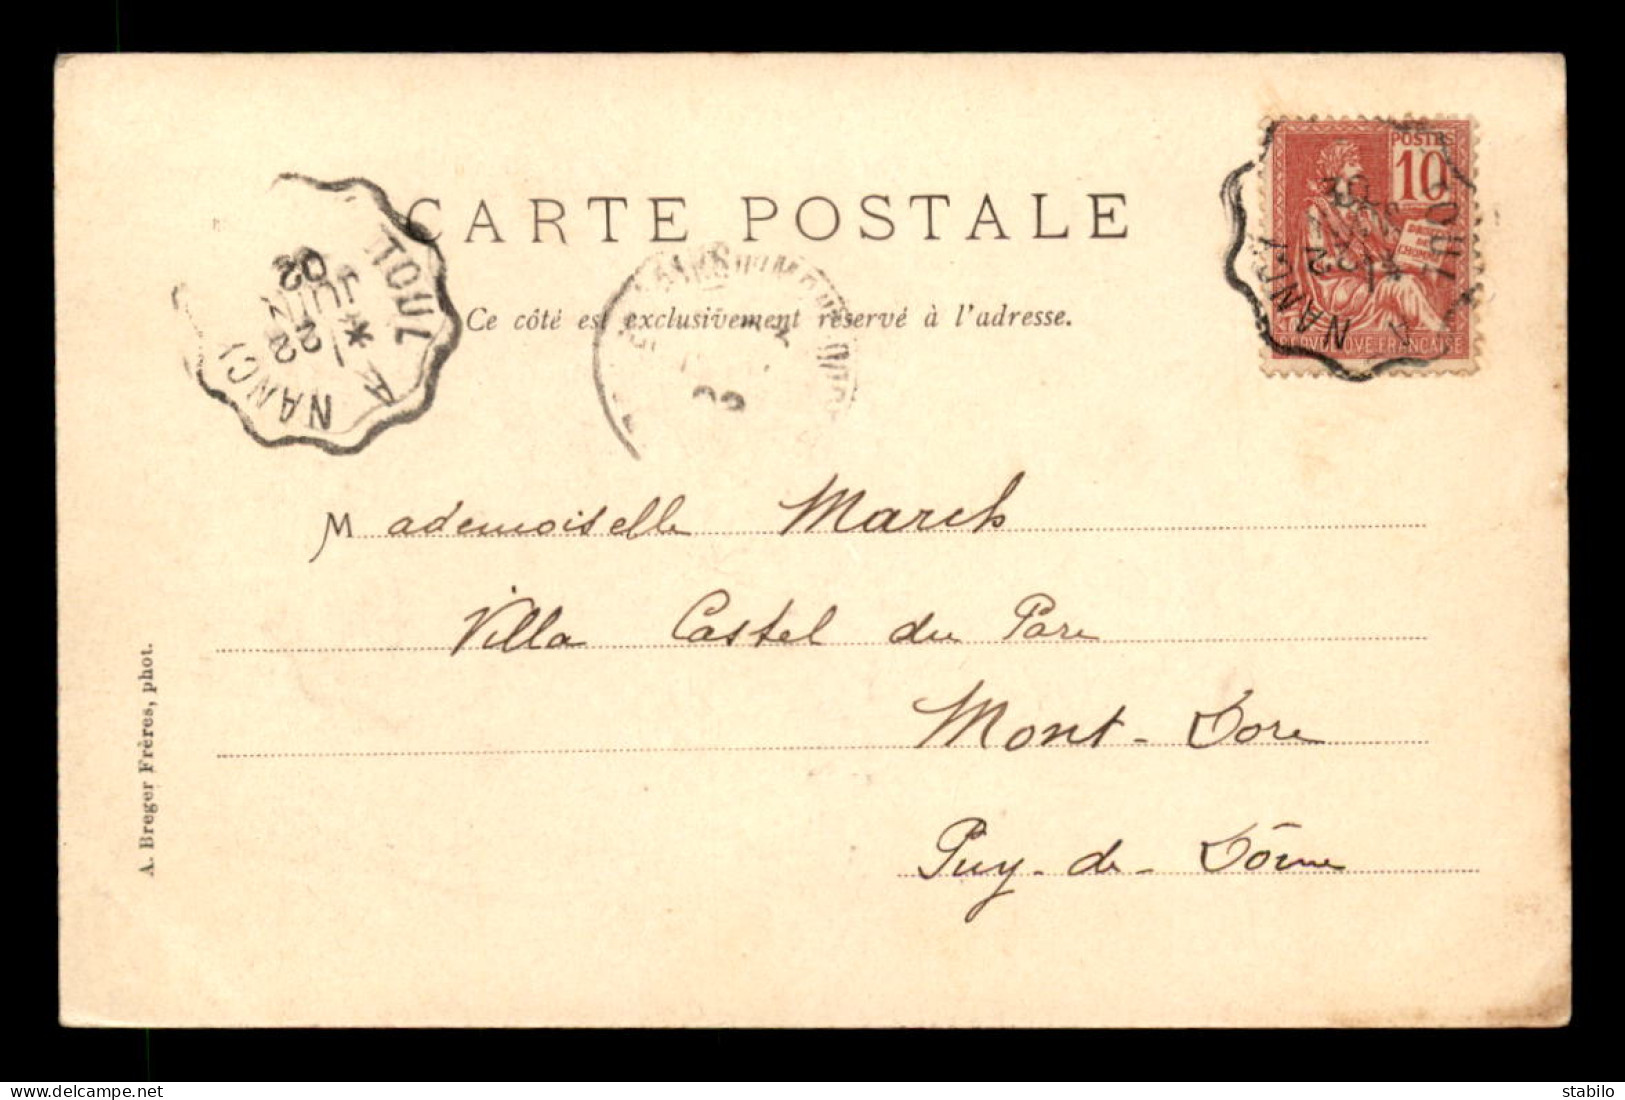 CARTE POSTALE
Ce côté est exclusivement réservé à l'adresse.
TOUL A NANCY
22
JUIN
02
02
POSTES
10
DROITS
DE
L'HOMME
REPUBLIQUE FRANÇAISE
TOUL A NANCY
22
JUIN
02
Mademoiselle March
Villa Castel du Parc
Mont-Dore
Puy-de-Dôme
A. Breger Frères, phot.
stabilo